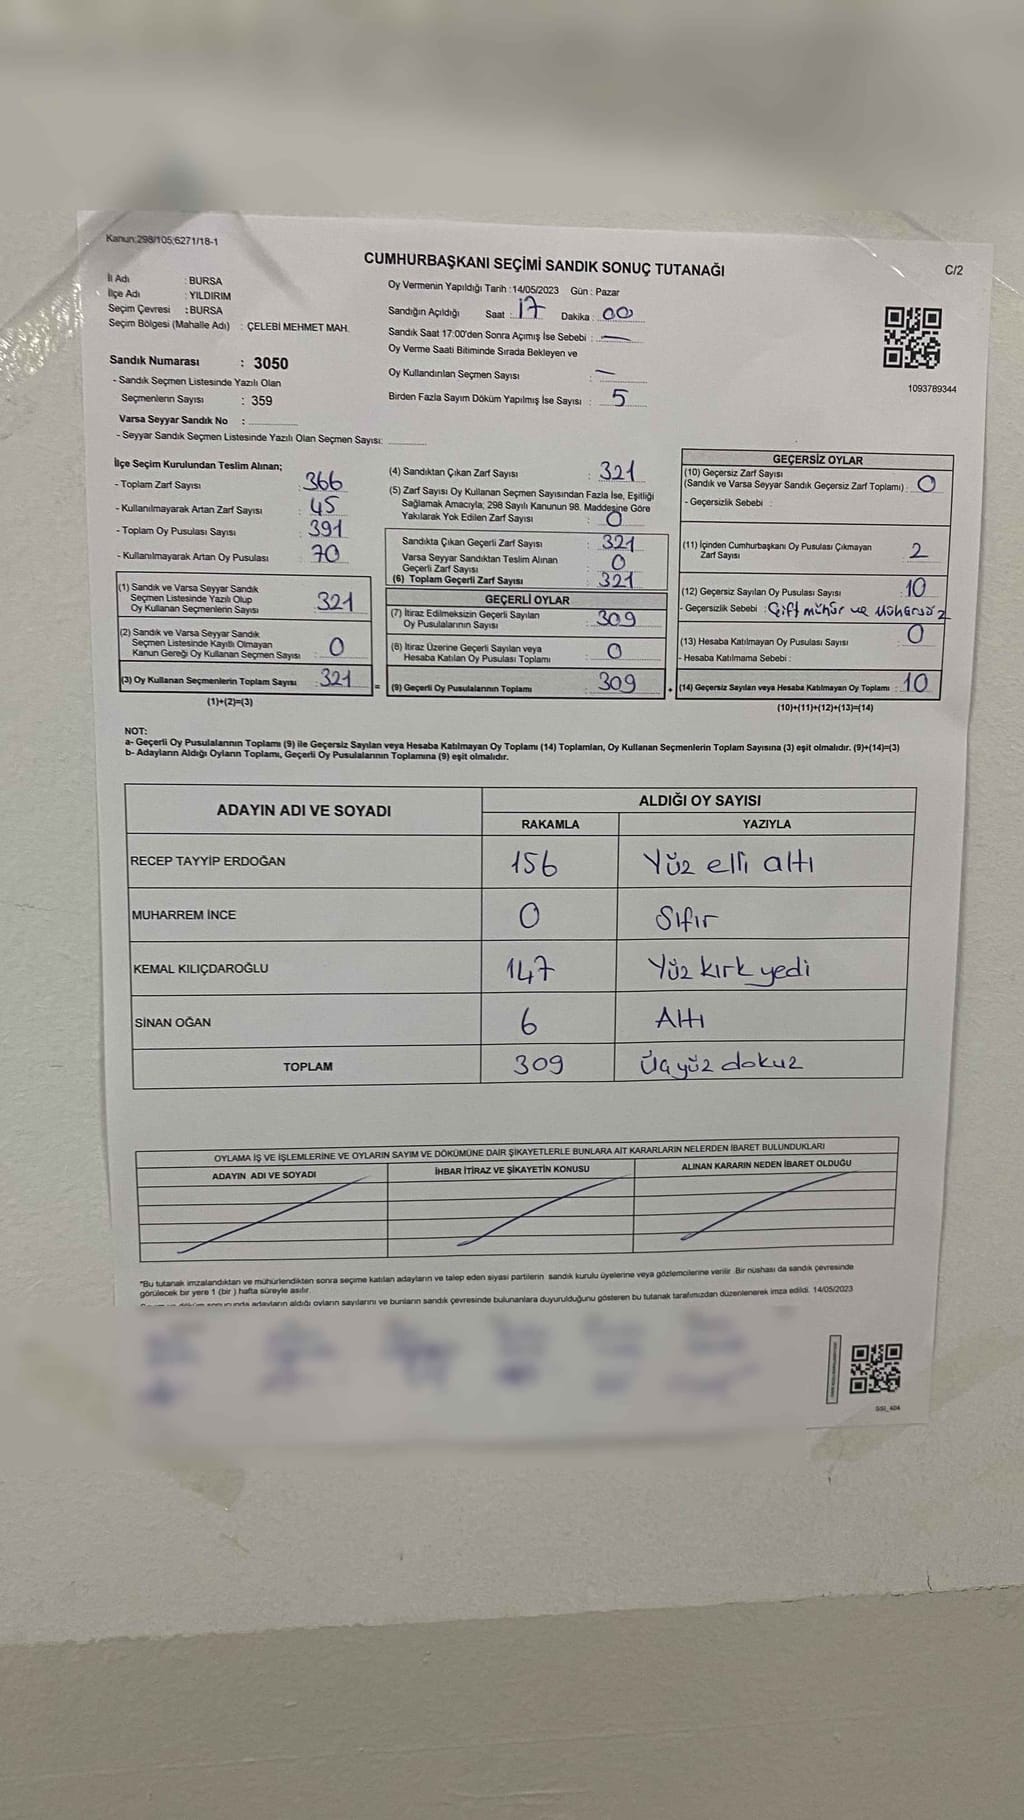 Kanun:298/105;6271/18-1
CUMHURBAŞKANI SEÇİMİ SANDIK SONUÇ TUTANAĞI
C/2
İl Adı : BURSA
İlçe Adı : YILDIRIM
Seçim Çevresi : BURSA
Seçim Bölgesi (Mahalle Adı) : ÇELEBİ MEHMET MAH.
Sandık Numarası : 3050
- Sandık Seçmen Listesinde Yazılı Olan
Seçmenlerin Sayısı : 359
Varsa Seyyar Sandık No :
- Seyyar Sandık Seçmen Listesinde Yazılı Olan Seçmen Sayısı:
Oy Vermenin Yapıldığı Tarih : 14/05/2023 Gün : Pazar
Sandığın Açıldığı Saat : 17 Dakika : 00
Sandık Saat 17:00'den Sonra Açımış İse Sebebi : —
Oy Verme Saati Bitiminde Sırada Bekleyen ve
Oy Kullandırılan Seçmen Sayısı : —
Birden Fazla Sayım Döküm Yapılmış İse Sayısı : 5
1093789344
İlçe Seçim Kurulundan Teslim Alınan;
- Toplam Zarf Sayısı : 366
- Kullanılmayarak Artan Zarf Sayısı : 45
- Toplam Oy Pusulası Sayısı : 391
- Kullanılmayarak Artan Oy Pusulası : 70
(1) Sandık ve Varsa Seyyar Sandık
Seçmen Listesinde Yazılı Olup
Oy Kullanan Seçmenlerin Sayısı : 321
(2) Sandık ve Varsa Seyyar Sandık
Seçmen Listesinde Kayıtlı Olmayan
Kanun Gereği Oy Kullanan Seçmen Sayısı : 0
(3) Oy Kullanan Seçmenlerin Toplam Sayısı : 321
(1)+(2)=(3)
(4) Sandıktan Çıkan Zarf Sayısı : 321
(5) Zarf Sayısı Oy Kullanan Seçmen Sayısından Fazla İse, Eşitliği
Sağlamak Amacıyla; 298 Sayılı Kanunun 98. Maddesine Göre
Yakılarak Yok Edilen Zarf Sayısı : 0
Sandıkta Çıkan Geçerli Zarf Sayısı : 321
Varsa Seyyar Sandıktan Teslim Alınan
Geçerli Zarf Sayısı : 0
(6) Toplam Geçerli Zarf Sayısı : 321
GEÇERLİ OYLAR
(7) İtiraz Edilmeksizin Geçerli Sayılan
Oy Pusulalarının Sayısı : 309
(8) İtiraz Üzerine Geçerli Sayılan veya
Hesaba Katılan Oy Pusulası Toplamı : 0
= (9) Geçerli Oy Pusulalarının Toplamı : 309
GEÇERSİZ OYLAR
(10) Geçersiz Zarf Sayısı
(Sandık ve Varsa Seyyar Sandık Geçersiz Zarf Toplamı) : 0
- Geçersizlik Sebebi :
(11) İçinden Cumhurbaşkanı Oy Pusulası Çıkmayan
Zarf Sayısı 2
(12) Geçersiz Sayılan Oy Pusulası Sayısı : 10
- Geçersizlik Sebebi : Çift mühür ve Mühürsüz
(13) Hesaba Katılmayan Oy Pusulası Sayısı : 0
- Hesaba Katılmama Sebebi :
+ (14) Geçersiz Sayılan veya Hesaba Katılmayan Oy Toplamı : 10
(10)+(11)+(12)+(13)=(14)
NOT:
a- Geçerli Oy Pusulalarının Toplamı (9) ile Geçersiz Sayılan veya Hesaba Katılmayan Oy Toplamı (14) Toplamları, Oy Kullanan Seçmenlerin Toplam Sayısına (3) eşit olmalıdır. (9)+(14)=(3)
b- Adayların Aldığı Oyların Toplamı, Geçerli Oy Pusulalarının Toplamına (9) eşit olmalıdır.
ADAYIN ADI VE SOYADI
ALDIĞI OY SAYISI
RAKAMLA YAZIYLA
RECEP TAYYİP ERDOĞAN 156 Yüz elli altı
MUHARREM İNCE 0 Sıfır
KEMAL KILIÇDAROĞLU 147 Yüz kırk yedi
SİNAN OĞAN 6 Altı
TOPLAM 309 Üçyüz dokuz
OYLAMA İŞ VE İŞLEMLERİNE VE OYLARIN SAYIM VE DÖKÜMÜNE DAİR ŞİKAYETLERLE BUNLARA AİT KARARLARIN NELERDEN İBARET BULUNDUKLARI
ADAYIN ADI VE SOYADI İHBAR İTİRAZ VE ŞİKAYETİN KONUSU ALINAN KARARIN NEDEN İBARET OLDUĞU
"Bu tutanak imzalandıktan ve mühürlendikten sonra seçime katılan adayların ve talep eden siyasi partilerin sandık kurulu üyelerine veya gözlemcilerine verilir. Bir nüshası da sandık çevresinde
görülecek bir yere 1 (bir ) hafta süreyle asılır.
sonucunda adayların aldığı oyların sayılarını ve bunların sandık çevresinde bulunanlara duyurulduğunu gösteren bu tutanak tarafımızdan düzenlenerek imza edildi. 14/05/2023
GSI_404